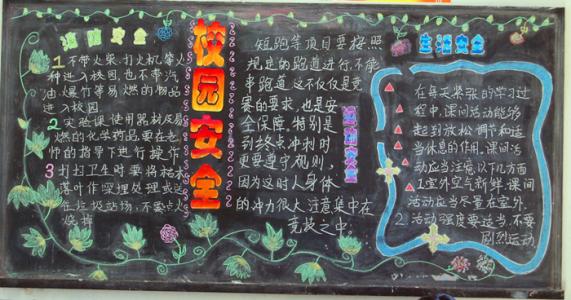 消防安全
1 不带火柴、打火机等火
种进入校园,也不带汽
油、爆竹等易燃的物品
进入校园
2 实验课使用器材及易
燃的化学药品要在老
师的指导下进行操作
3 打扫卫生时要将枯木
落叶作深埋处理或送
往垃圾站场,不要点火
焚烧
校园安全
短跑等项目要按照
规定的跑道进行,不能
串跑道,这不仅仅是竞
赛的要求,也是安
全保障,特别是
到终点冲刺时
更要遵守规则,
因为这时人身体
的冲力很大,注意集中在
竞技之中。
运动安全
生活安全
在每天紧张的学习过
程中,课间活动能够
起到放松、调节和适
当休息的作用。课间活
动应当注意以下几方面
1.室外空气新鲜,课间
活动应当尽量在室外。
2.活动强度要适当,不要
剧烈运动。